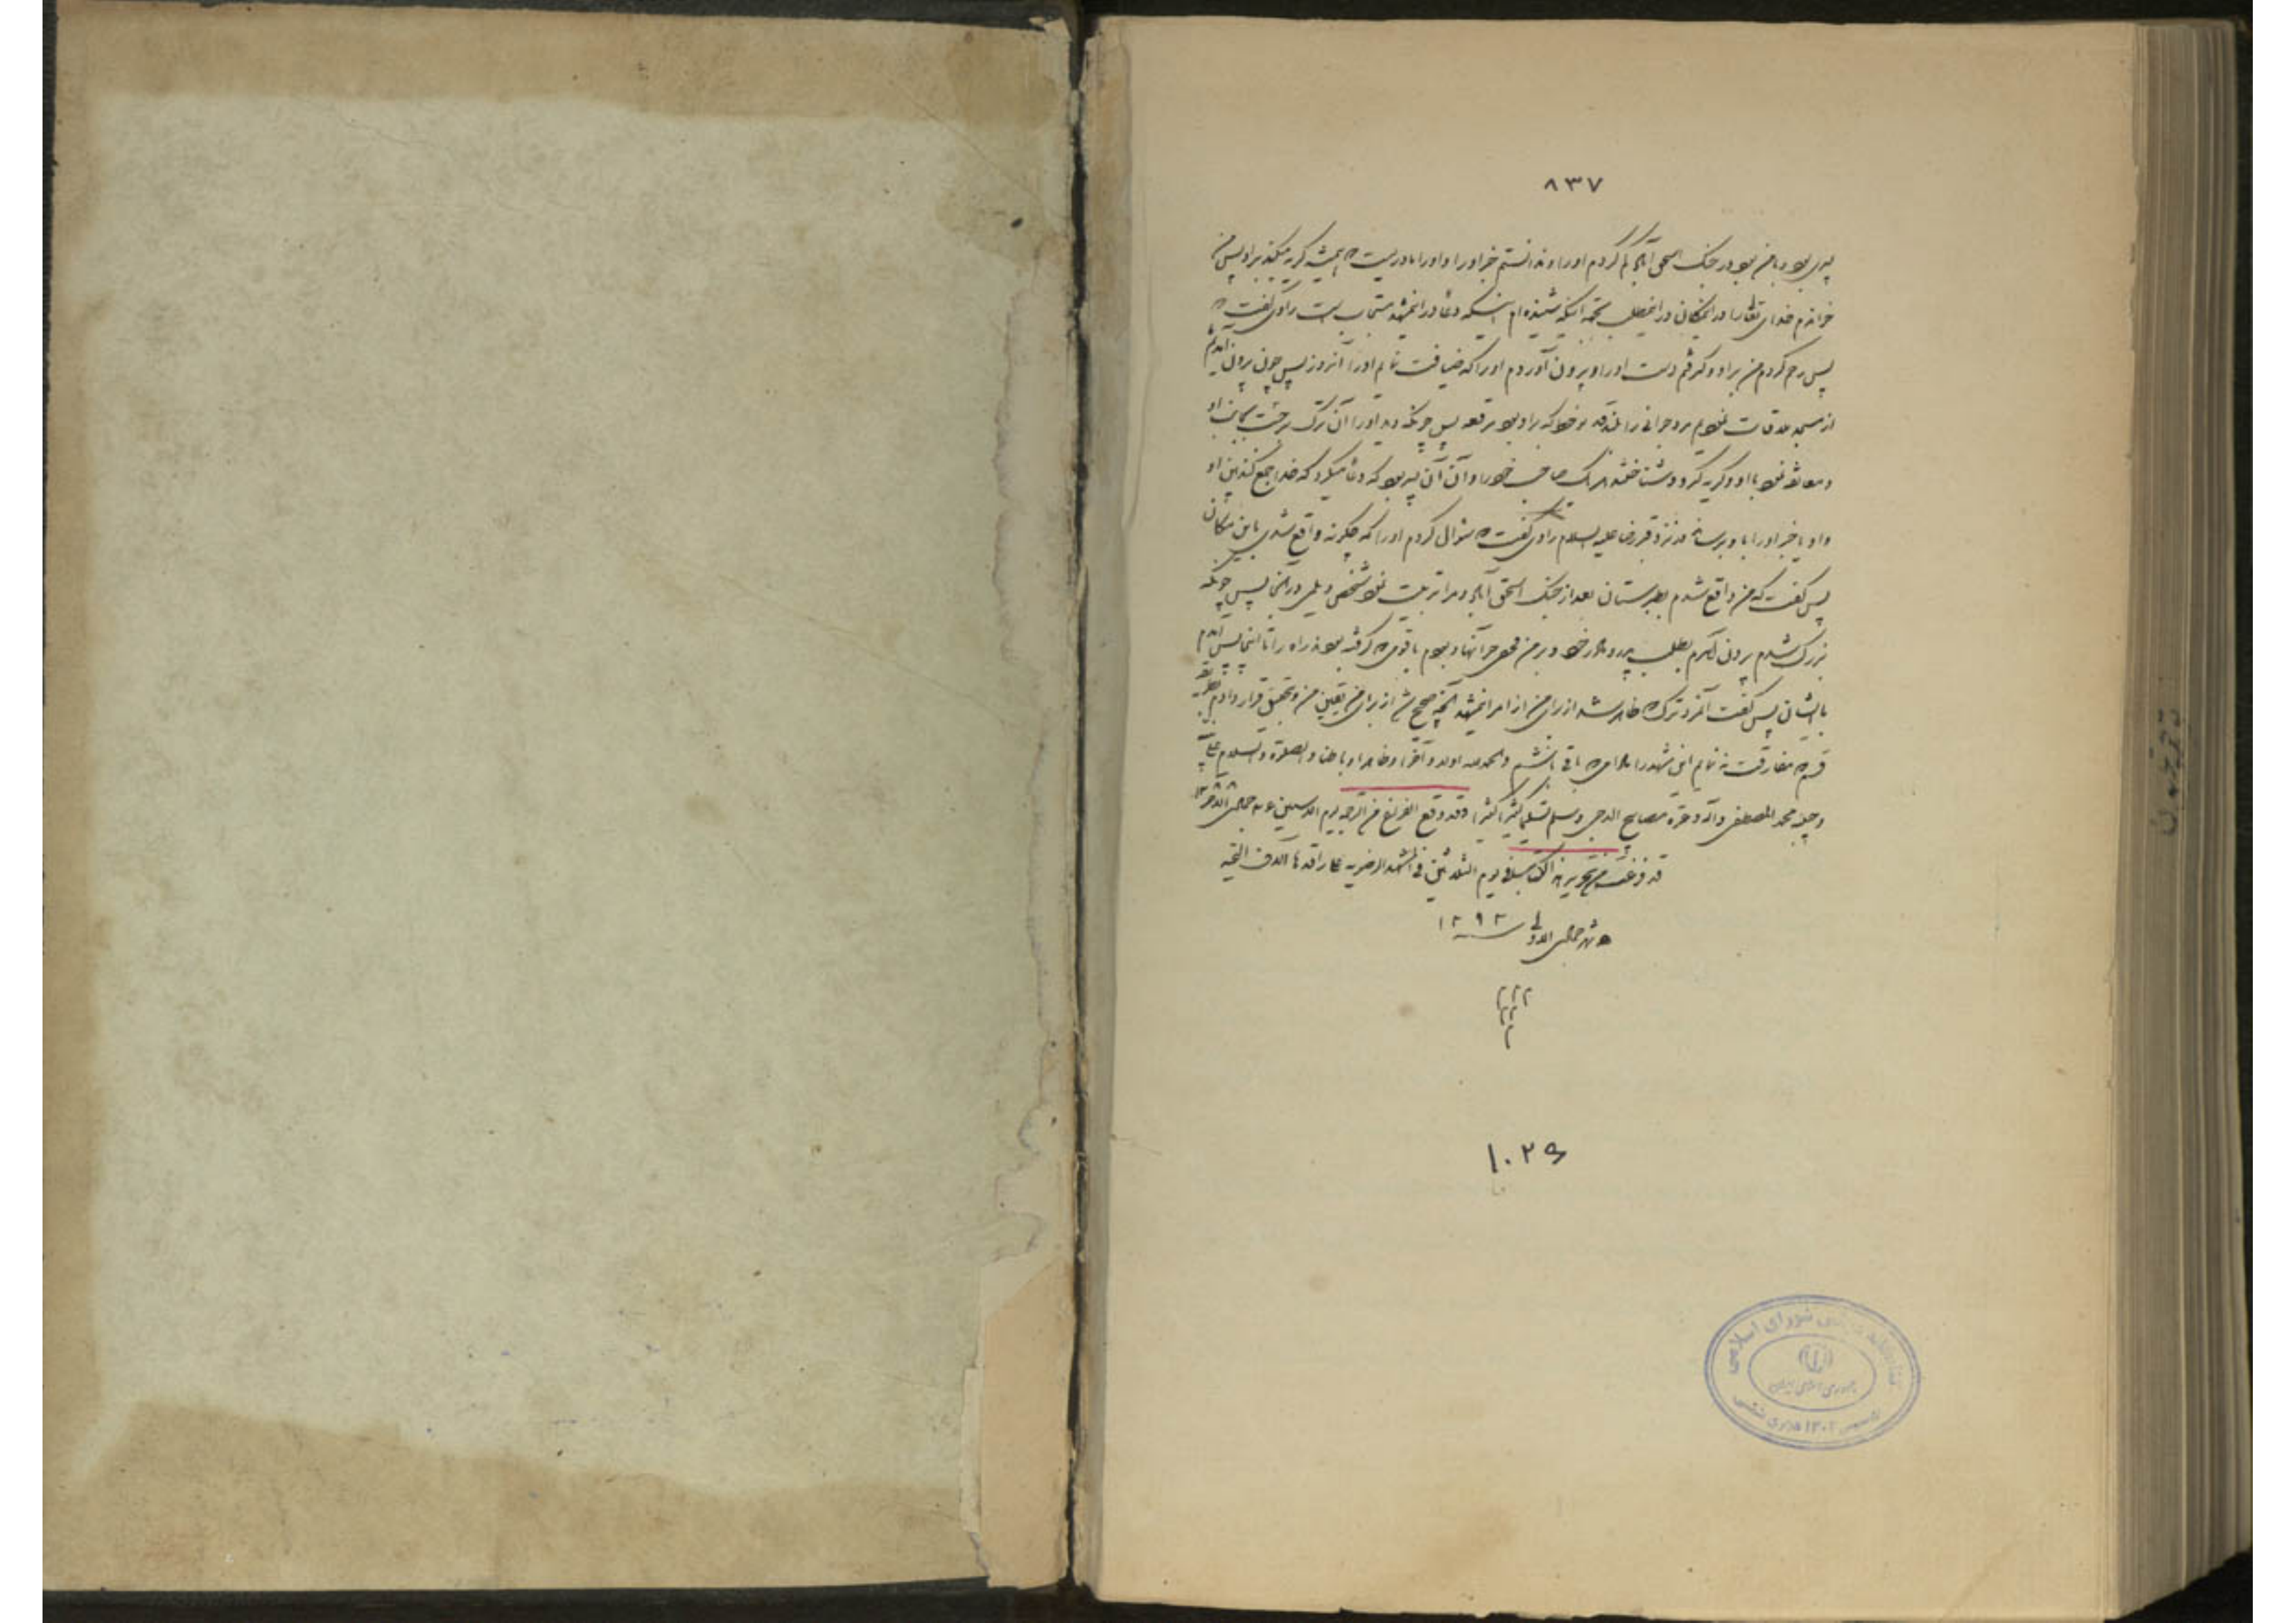 ۸۳۷
پسری بود و با من بود در جنک اسحق آباد کم کردم اورا و ندانستم خبر اورا و اورا مادریست که همیشه کریه میکند بر او پس من
خواندم خدای تعالی را در این مکان در این مطلب بجهة اینکه شنیده ام اینکه دعا در این مشهد مستجاب است راوی گفت که
پس رحم کردم من بر او و کرفتم دست اورا و بیرون آوردم اورا که ضیافت نمایم اورا آنروز پس چون بیرون آمدیم
از مسجد ملاقات نمود مرد جوانی را بلند قد و خط که بر او بود مرقعه پس چونکه دید اورا آن ترک برجست بجانب او
و معانقه نمود با او و کریه کرد و شناختند هر یک صاحب خود را و آن آن پسر بود که دعا میکرد که خدا جمع کند بین او
و او یا خبر اورا باو برساند در نزد قبر رضا علیه السلام راوی گفت که سؤال کردم اورا که چکونه واقع شدی باین مکان
پس گفت که من واقع شدم بطبرستان بعد از جنک اسحق آباد و مرا تربیت نمود شخص دیلمی در آنجا پس چونکه
بزرک شدم بیرون آمدم بطلب پدر و مادر خود و بر من مخفی بود خبر آنها و بودم با قومی که کرفته بودند راه را تا اینجا پس آمدم
با ایشان پس گفت آنمرد ترک که ظاهر شد از برای من از امر این مشهد آنچه صحیح شد از برای من یقین من و تحقیق قرار دادم
قسم که مفارقت نه نمایم این مشهد را مادامی که باقی باشم والحمد لله اولا و آخرا و ظاهرا و باطنا والصلوة والسلام علی
محمد المصطفی وآله وعترته مصابیح الدجی وسلم تسلیما کثیرا کثیرا وقد وقع الفراغ من الترجمة یوم
قد فرغت من تحریر هذا الکتاب فی یوم الثلاثین فی المشهد الرضویه علی راقدها آلاف التحیه
شهر جمادی الاولی سنه ۱۲۹۲
۱۰۲۶
کتابخانه مجلس شورای اسلامی
جمهوری اسلامی ایران
تأسیس ۱۳۰۲ هجری شمسی